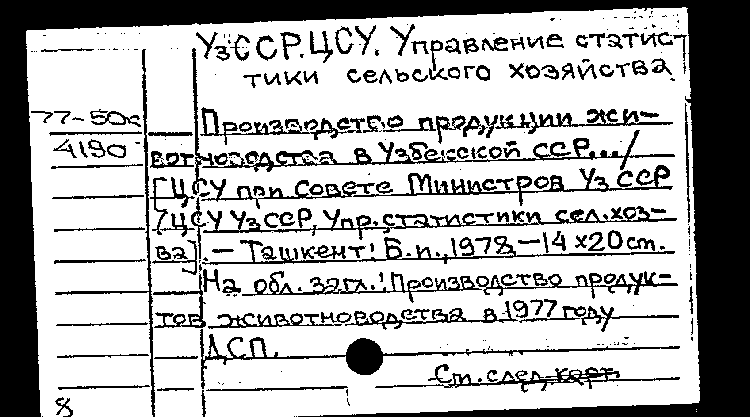 УзССР. ЦСУ. Управление статис-
тики сельского хозяйства
77-50к
Производство продукции жи-
4190
вотноводства в Узбекской ССР.../
[ЦСУ при Совете Министров УзССР
/ЦСУ УзССР, Упр. статистики сел. хоз-
ва]. — Ташкент: Б. и., 1978, — 14 х 20 ст.
На обл. загл.: Производство продук-
тов животноводства в 1977 году
ДСП.
См. след. карт.
8